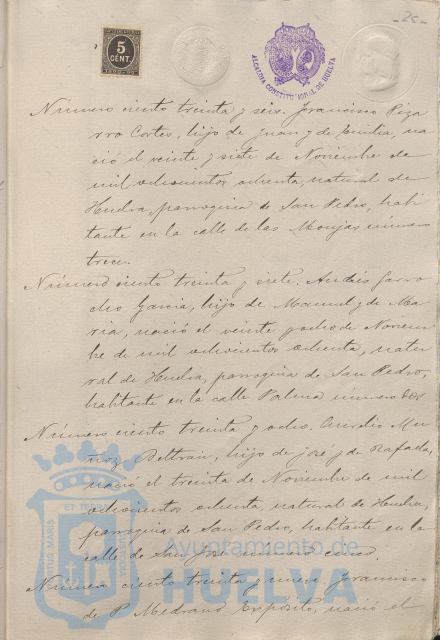 25
5
CENT.
ALCALDIA CONSTITUCIONAL DE HUELVA
Número ciento treinta y seis. Francisco Piza
rro Cortes, hijo de Juan y de Emilia, na
ció el veinte y siete de Noviembre de
mil ochocientos ochenta, natural de
Huelva, parroquia de San Pedro, habi
tante en la calle de las Monjas número
trece.
Número ciento treinta y siete. Andrés Garro
cho Garcia, hijo de Manuel y de Ma
ria, nació el veinte y ocho de Noviem
bre de mil ochocientos ochenta, natu
ral de Huelva, parroquia de San Pedro,
habitante en la calle Palma número dos
Número ciento treinta y ocho. Aurelio Mu
ñoz Beltran, hijo de José y de Rafaela,
nació el treinta de Noviembre de mil
ochocientos ochenta, natural de Huelva,
parroquia de San Pedro, habitante en la
calle de San José número cinco.
Número ciento treinta y nueve. Francisco
de P. Medrano Expósito, nació el
Ayuntamiento de
HUELVA